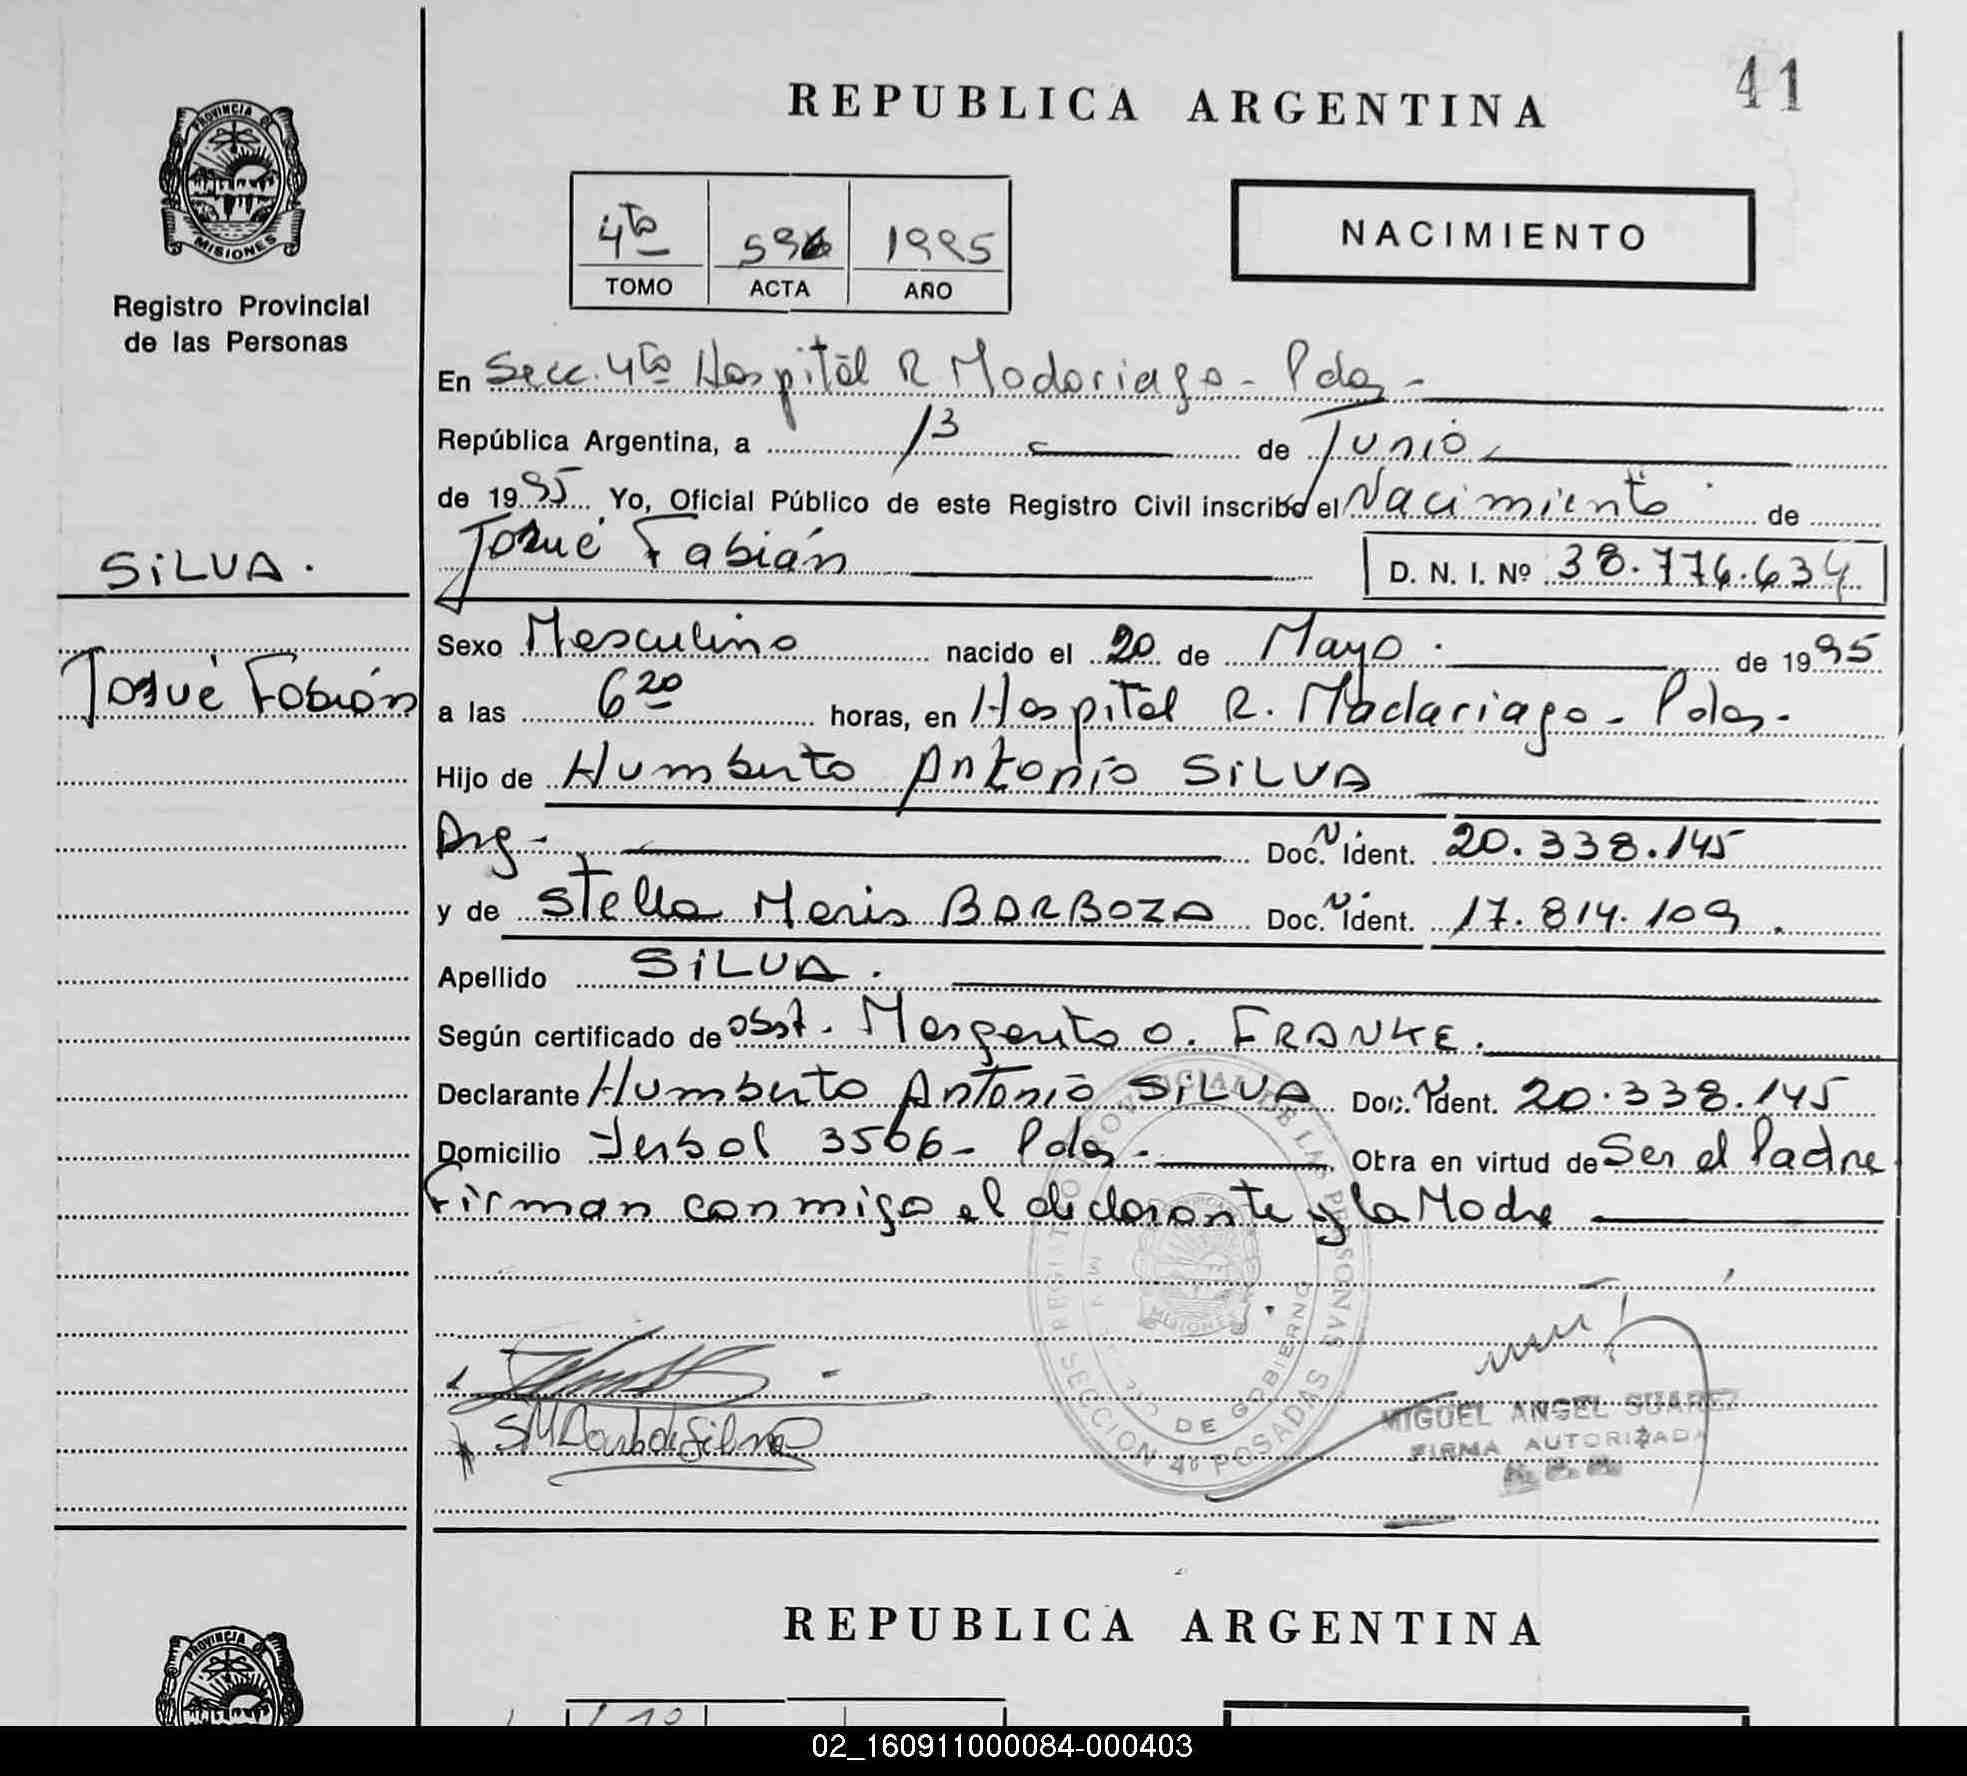 41
REPUBLICA ARGENTINA
PROVINCIA DE
MISIONES
Registro Provincial
de las Personas
4ta 596 1995
TOMO ACTA AÑO
NACIMIENTO
En Secc. 4ta Hospital R Madariaga - Pdas -
República Argentina, a 13 de Junio
de 1995 Yo, Oficial Público de este Registro Civil inscribo el Nacimiento de
Josué Fabián D. N. I. Nº 38.776.634
SILVA.
Josué Fabián
Sexo Masculino nacido el 20 de Mayo. de 1995
a las 6 20 horas, en Hospital R. Madariaga - Pdas -
Hijo de Humberto Antonio SILVA
Arg - Doc. N. Ident. 20.338.145
y de Stella Maris BARBOZA Doc. N. Ident. 17.814.109.
Apellido SILVA.
Según certificado de obst. Margarita O. FRANKE.
Declarante Humberto Antonio SILVA Doc. N Ident. 20.338.145
Domicilio Yerbal 3506 - Pdas - Obra en virtud de Ser el Padre
Firman conmigo el declarante y la Madre
REGISTRO PROVINCIAL DE LAS PERSONAS
DE GOBIERNO
SECCION 4º POSADAS
MISIONES
MIGUEL ANGEL SUAREZ
FIRMA AUTORIZADA
REPUBLICA ARGENTINA
PROVINCIA DE
02_160911000084-000403